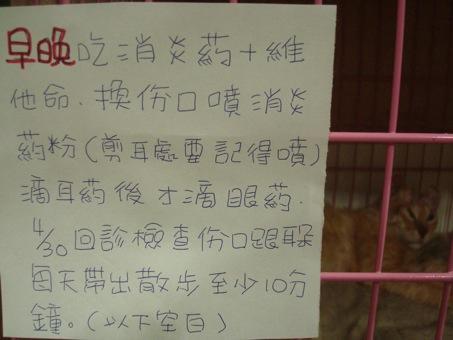 早晚吃消炎藥+維
他命.換份口噴消炎
藥粉(剪耳處要記得噴)
滴耳药後才滴眼药.
4/30回診檢查份口跟耳朵
每天帶出散步至少10分
鐘。(以下空白)